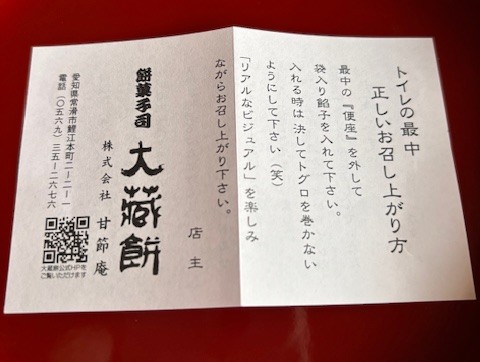 トイレの最中
正しいお召し上がり方
最中の『便座』を外して
袋入り餡子を入れて下さい。
入れる時は決してトグロを巻かない
ようにして下さい(笑)
「リアルなビジュアル」を楽しみ
ながらお召し上がり下さい。
店主
餅菓子司
大蔵餅
株式会社 甘節庵
愛知県常滑市鯉江本町二-二-一
電話(〇五六九)三五-二六七六
大蔵餅公式HPを
ご覧いただけます